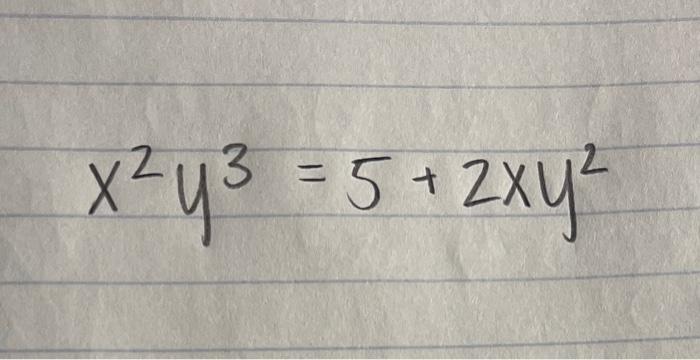 x²y³ = 5 + 2xy²